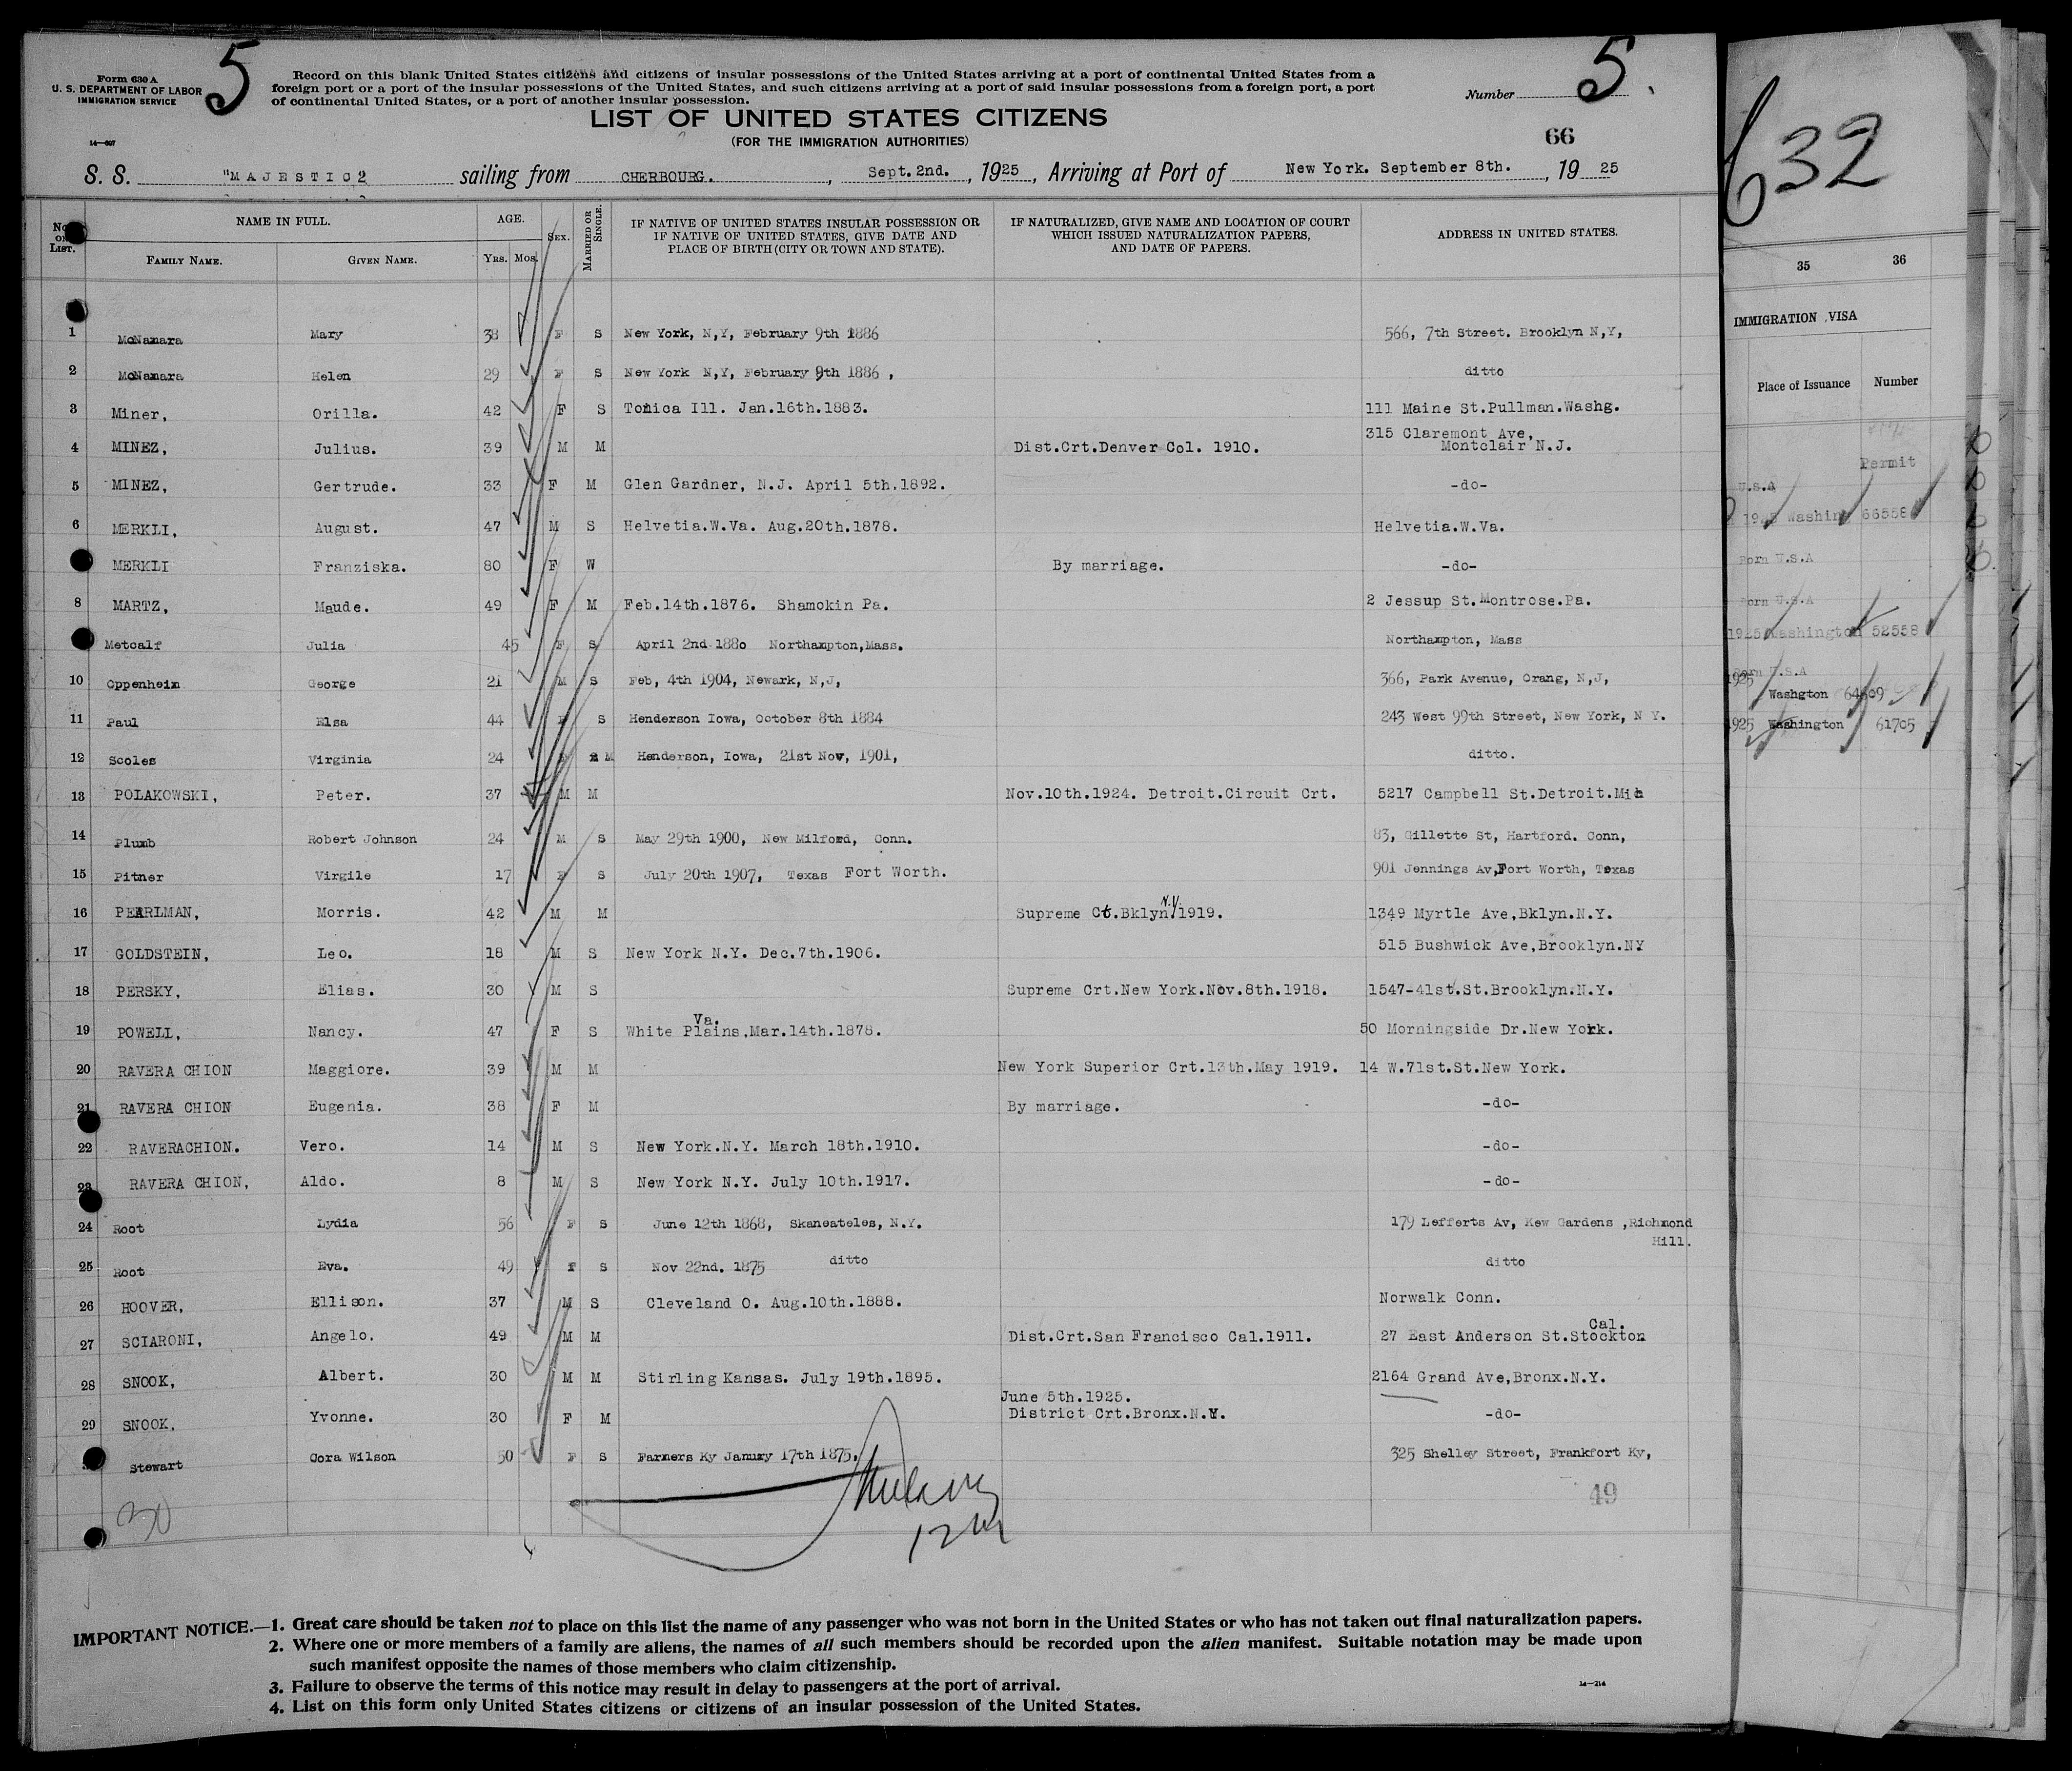 5
Form 630 A
U. S. DEPARTMENT OF LABOR
IMMIGRATION SERVICE
14—807
Record on this blank United States citizens and citizens of insular possessions of the United States arriving at a port of continental United States from a
foreign port or a port of the insular possessions of the United States, and such citizens arriving at a port of said insular possessions from a foreign port, a port
of continental United States, or a port of another insular possession.
Number 5.
LIST OF UNITED STATES CITIZENS
(FOR THE IMMIGRATION AUTHORITIES)
66
S. S. "MAJESTIC2 sailing from CHERBOURG. , Sept. 2nd. , 1925 , Arriving at Port of New York. September 8th. , 19 25
No. ON LIST. NAME IN FULL. AGE. SEX. MARRIED OR SINGLE. IF NATIVE OF UNITED STATES INSULAR POSSESSION OR IF NATIVE OF UNITED STATES, GIVE DATE AND PLACE OF BIRTH (CITY OR TOWN AND STATE). IF NATURALIZED, GIVE NAME AND LOCATION OF COURT WHICH ISSUED NATURALIZATION PAPERS, AND DATE OF PAPERS. ADDRESS IN UNITED STATES.
FAMILY NAME. GIVEN NAME. YRS. MOS.
1 McNamara Mary 38 F S New York, N,Y, February 9th 1886 566, 7th Street. Brooklyn N,Y,
2 McNamara Helen 29 F S New York N,Y, February 9th 1886 , ditto
3 Miner, Orilla. 42 F S Tonica Ill. Jan.16th.1883. 111 Maine St.Pullman.Washg.
4 MINEZ, Julius. 39 M M Dist.Crt.Denver Col. 1910. 315 Claremont Ave,
Montclair N.J.
5 MINEZ, Gertrude. 33 F M Glen Gardner, N.J. April 5th.1892. -do-
6 MERKLI, August. 47 M S Helvetia.W.Va. Aug.20th.1878. Helvetia.W.Va.
MERKLI Franziska. 80 F W By marriage. -do-
8 MARTZ, Maude. 49 F M Feb.14th.1876. Shamokin Pa. 2 Jessup St.Montrose.Pa.
Metcalf Julia 45 F S April 2nd 1880 Northampton,Mass. Northampton, Mass
10 Oppenheim George 21 M S Feb, 4th 1904, Newark, N,J, 366, Park Avenue, Orang, N,J,
11 Paul Elsa 44 F S Henderson Iowa, October 8th 1884 243 West 99th Street, New York, N Y.
12 Scoles Virginia 24 F M Henderson, Iowa, 21st Nov, 1901, ditto.
13 POLAKOWSKI, Peter. 37 M M Nov.10th.1924. Detroit.Circuit Crt. 5217 Campbell St.Detroit.Mich
14 Plumb Robert Johnson 24 M S May 29th 1900, New Milford, Conn. 83, Gillette St, Hartford. Conn,
15 Pitner Virgile 17 F S July 20th 1907, Texas Fort Worth. 901 Jennings Av,Fort Worth, Texas
16 PEARLMAN, Morris. 42 M M Supreme Ct.Bklyn N.Y. 1919. 1349 Myrtle Ave,Bklyn.N.Y.
17 GOLDSTEIN, Leo. 18 M S New York N.Y. Dec.7th.1906. 515 Bushwick Ave,Brooklyn.NY
18 PERSKY, Elias. 30 M S Supreme Crt.New York.Nov.8th.1918. 1547-41st.St.Brooklyn.N.Y.
19 POWELL, Nancy. 47 F S White Plains Va.,Mar.14th.1878. 50 Morningside Dr.New York.
20 RAVERA CHION Maggiore. 39 M M New York Superior Crt.13th.May 1919. 14 W.71st.St.New York.
21 RAVERA CHION Eugenia. 38 F M By marriage. -do-
22 RAVERACHION. Vero. 14 M S New York.N.Y. March 18th.1910. -do-
23 RAVERA CHION, Aldo. 8 M S New York N.Y. July 10th.1917. -do-
24 Root Lydia 56 F S June 12th 1868, Skaneateles, N.Y. 179 Lefferts Av, Kew Gardens ,Richmond
Hill.
25 Root Eva. 49 F S Nov 22nd. 1875 ditto ditto
26 HOOVER, Ellison. 37 M S Cleveland O. Aug.10th.1888. Norwalk Conn.
27 SCIARONI, Angelo. 49 M M Dist.Crt.San Francisco Cal.1911. 27 East Anderson St.Stockton Cal.
28 SNOOK, Albert. 30 M M Stirling Kansas. July 19th.1895. 2164 Grand Ave,Bronx.N.Y.
29 SNOOK. Yvonne. 30 F M June 5th.1925.
District Crt.Bronx.N.Y. -do-
Stewart Cora Wilson 50 F S Farmers Ky Janury 17th 1875, 325 Shelley Street, Frankfort Ky,
30
49
IMPORTANT NOTICE.—1. Great care should be taken not to place on this list the name of any passenger who was not born in the United States or who has not taken out final naturalization papers.
2. Where one or more members of a family are aliens, the names of all such members should be recorded upon the alien manifest. Suitable notation may be made upon
such manifest opposite the names of those members who claim citizenship.
3. Failure to observe the terms of this notice may result in delay to passengers at the port of arrival.
4. List on this form only United States citizens or citizens of an insular possession of the United States.
14—214
632
35 36
IMMIGRATION VISA
Place of Issuance Number
Permit
U.S.A
Washin 66558
Born U.S.A
Born U.S.A
1925 Washington 52558
Born U.S.A
1925 Washgton
1925 Washington 61705